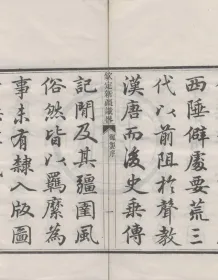 西陲僻處要荒三
代以前阻於聲教
漢唐而後史乘傳
欽定新疆識畧 御製序 一
記聞及其疆圉風
俗然皆以羈縻為
事未有隸入版圖